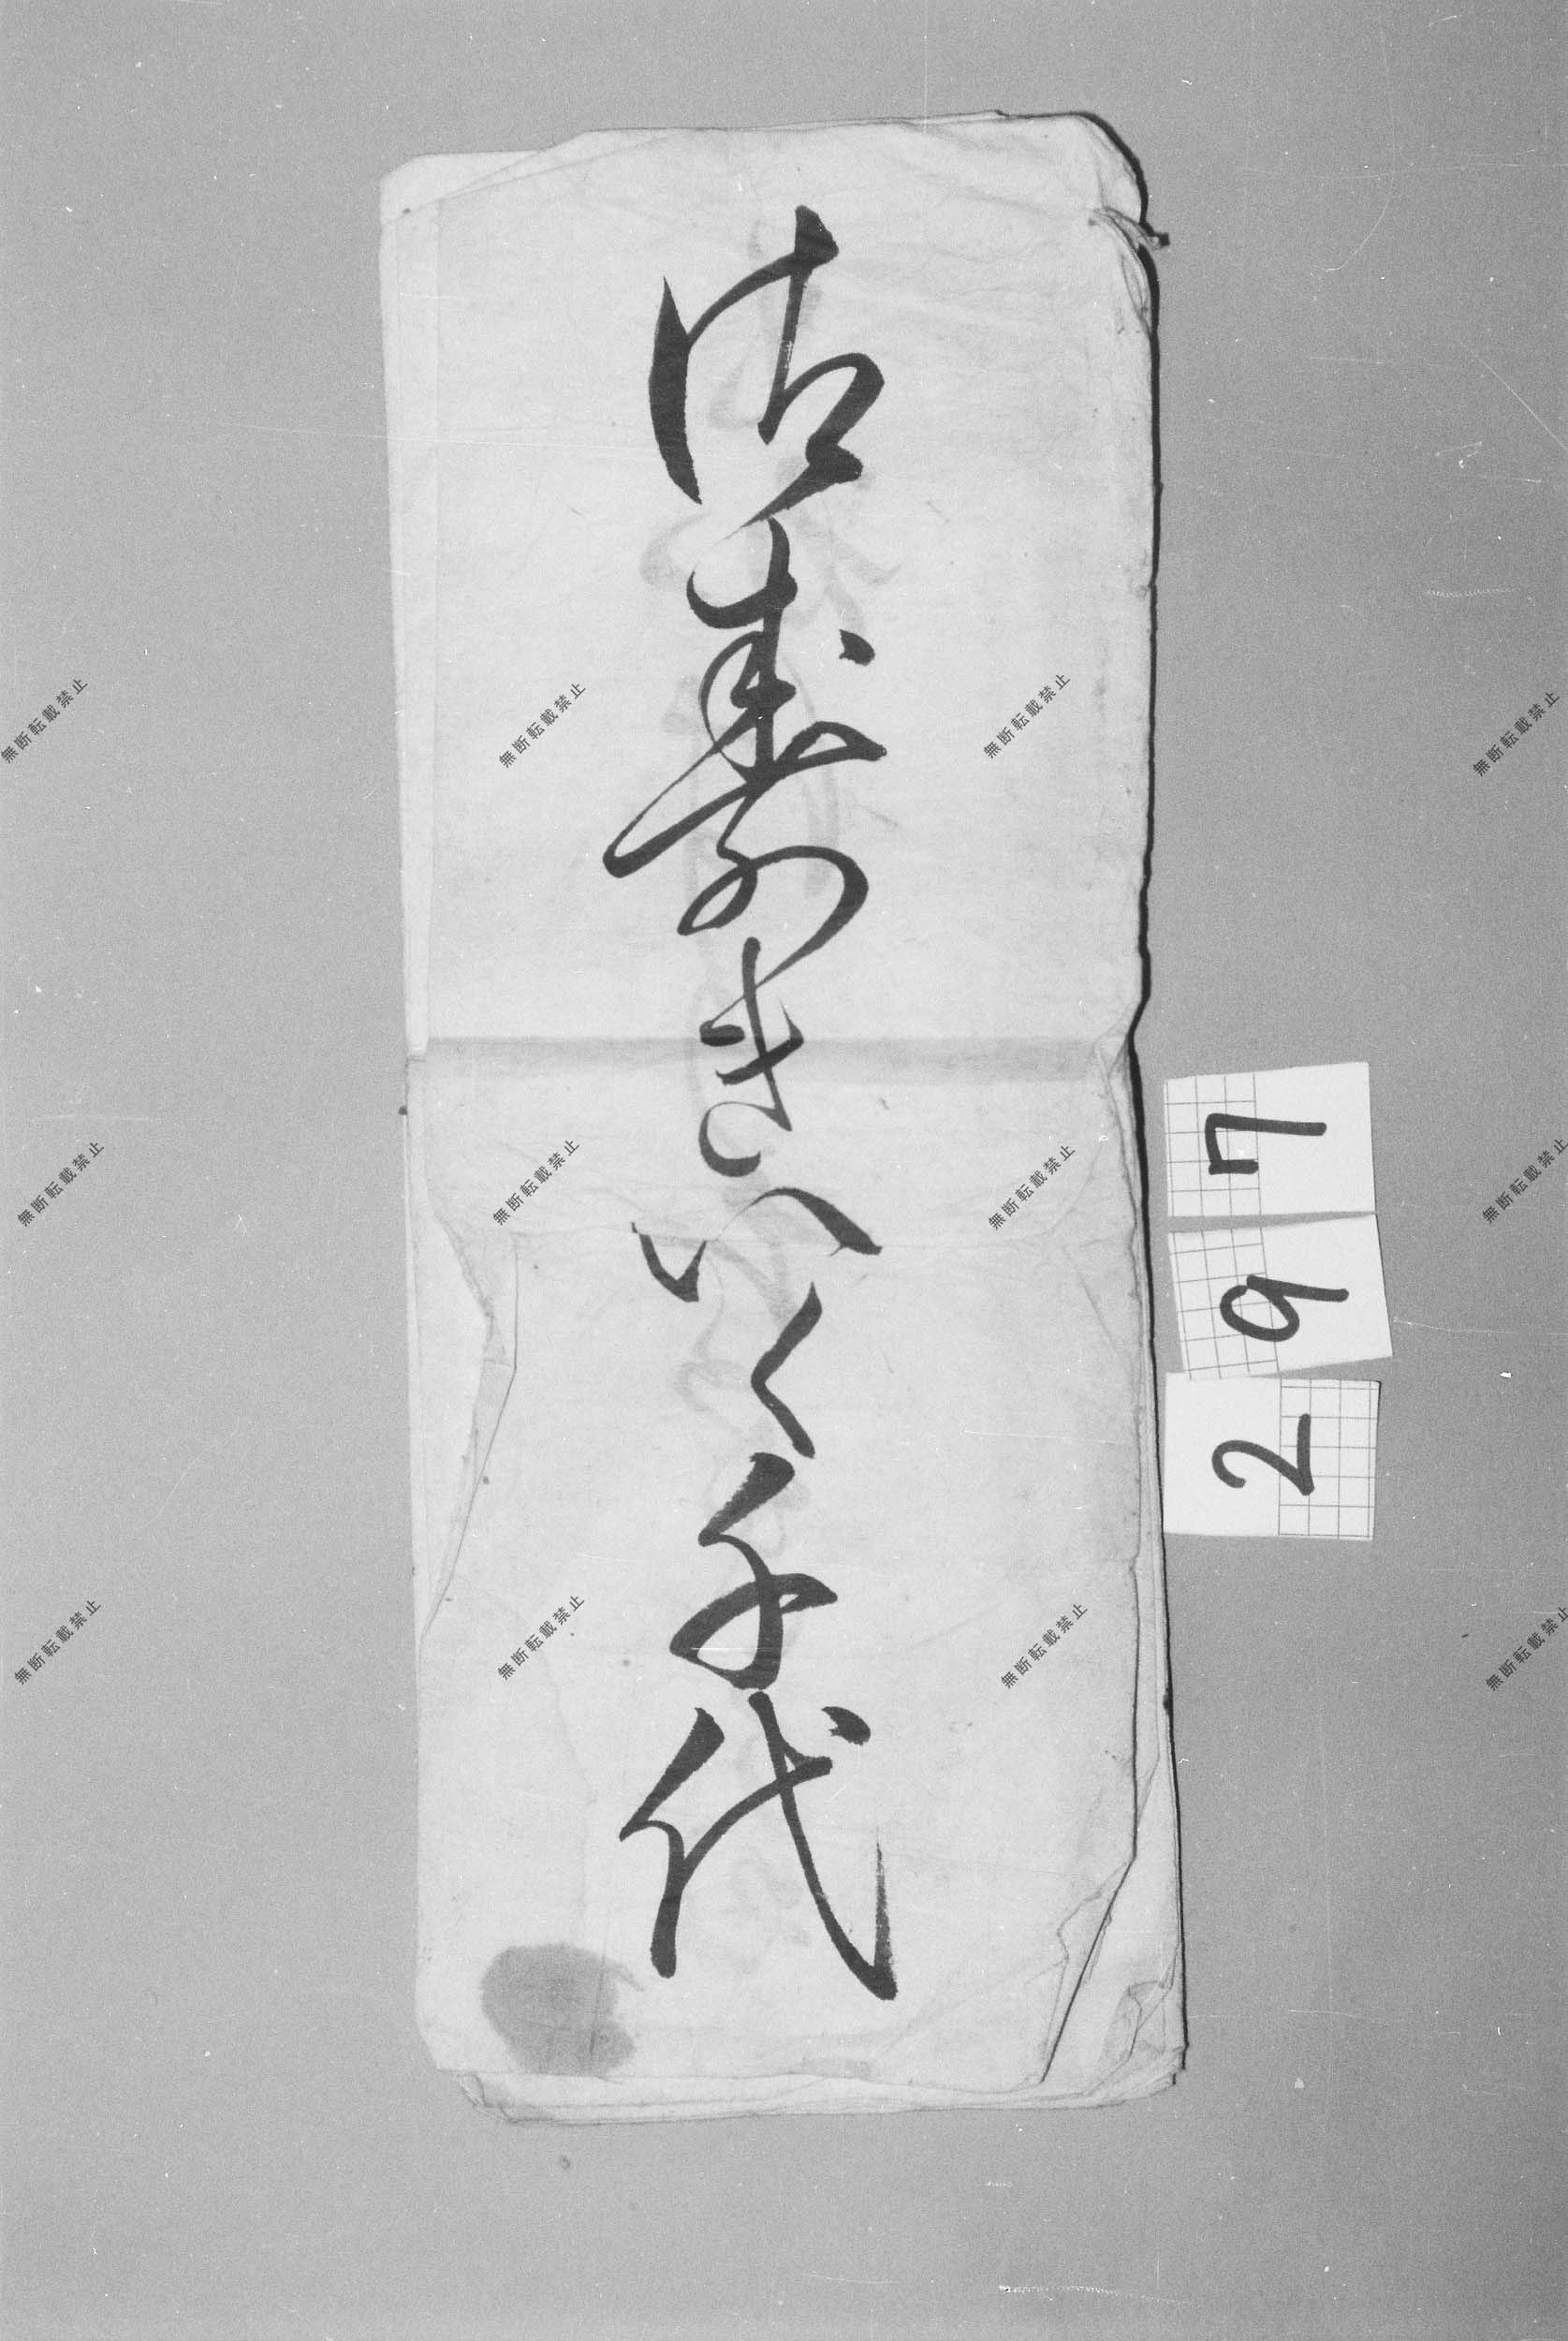 御寿きいく千代
297
無断転載禁止
無断転載禁止
無断転載禁止
無断転載禁止
無断転載禁止
無断転載禁止
無断転載禁止
無断転載禁止
無断転載禁止
無断転載禁止
無断転載禁止
無断転載禁止